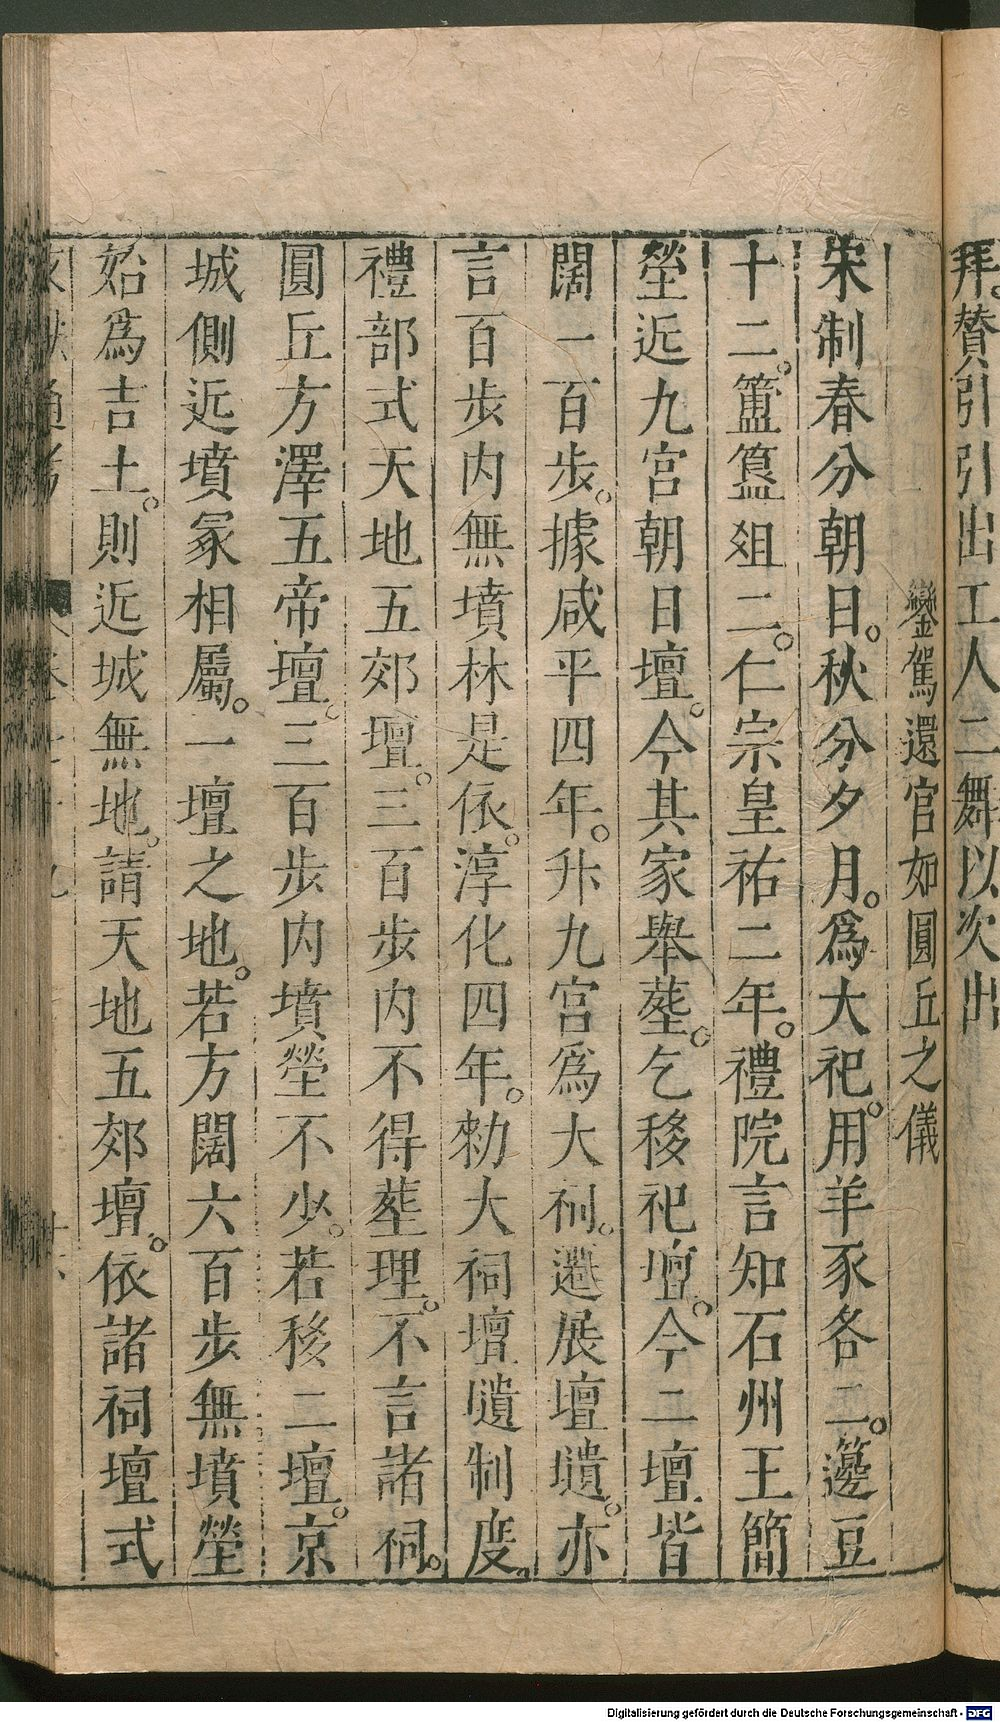 拜。贊引引出工人二舞以次出
鑾駕還宮如圓丘之儀
宋制春分朝日。秋分夕月。爲大祀。用羊豕各二。籩豆
十二。簠簋俎二。仁宗皇祐二年。禮院言知石州王簡
塋近九宮朝日壇。今其家舉葬。乞移祀壇。今二壇皆
闊一百步。據咸平四年。升九宮爲大祠。遷展壇壝。亦
言百步内無墳林是依。淳化四年。勑大祠壇壝制度。
禮部式天地五郊壇。三百步内不得葬理。不言諸祠。
圓丘方澤五帝壇。三百步内墳塋不少。若移二壇。京
城側近墳冢相屬。一壇之地。若方闊六百步無墳塋
始爲吉土。則近城無地。請天地五郊壇。依諸祠壇式
Digitalisierung gefördert durch die Deutsche Forschungsgemeinschaft - DFG